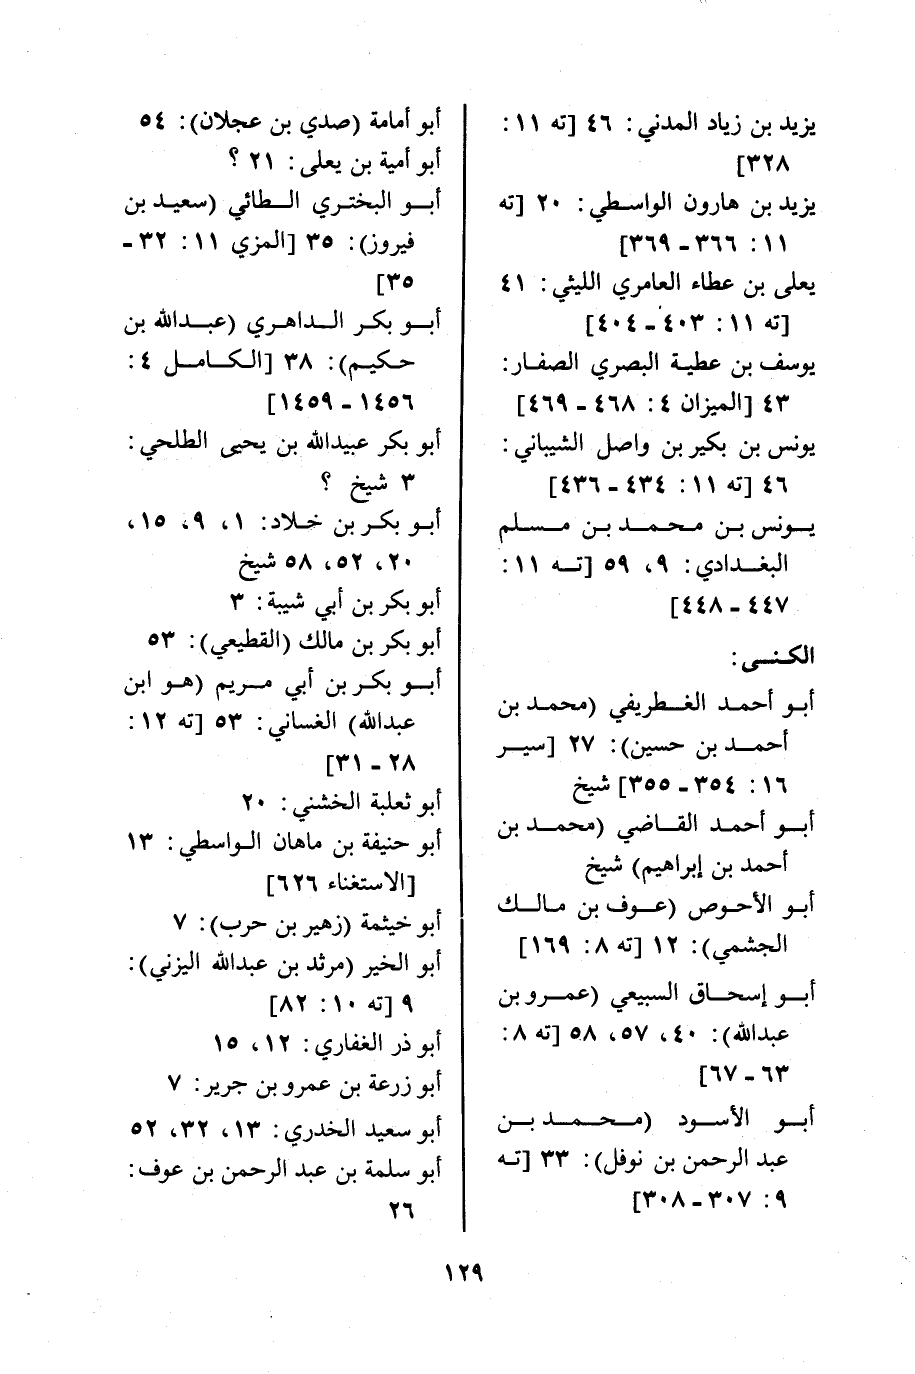 يزيد بن زياد المدني: ٤٦ [ته ١١:
٣٢٨]
يزيد بن هارون الواسطي: ٢٠ [ته
١١: ٣٦٦ - ٣٦٩]
يعلى بن عطاء العامري الليثي: ٤١
[ته ١١: ٤٠٣ - ٤٠٤]
يوسف بن عطية البصري الصفار:
٤٣ [الميزان ٤: ٤٦٨ - ٤٦٩]
يونس بن بكير بن واصل الشيباني:
٤٦ [ته ١١: ٤٣٤ - ٤٣٦]
يونس بن محمد بن مسلم
البغدادي: ٩، ٥٩ [ته ١١:
٤٤٧ - ٤٤٨]
الكنى:
أبو أحمد الغطريفي (محمد بن
أحمد بن حسين): ٢٧ [سير
١٦: ٣٥٤ - ٣٥٥] شيخ
أبو أحمد القاضي (محمد بن
أحمد بن إبراهيم) شيخ
أبو الأحوص (عوف بن مالك
الجشمي): ١٢ [ته ٨: ١٦٩]
أبو إسحاق السبيعي (عمرو بن
عبدالله): ٤٠، ٥٧، ٥٨ [ته ٨:
٦٣ - ٦٧]
أبو الأسود (محمد بن
عبد الرحمن بن نوفل): ٣٣ [ته
٩: ٣٠٧ - ٣٠٨]
أبو أمامة (صدي بن عجلان): ٥٤
أبو أمية بن يعلى: ٢١ ؟
أبو البختري الطائي (سعيد بن
فيروز): ٣٥ [المزي ١١: ٣٢ -
٣٥]
أبو بكر الداهري (عبدالله بن
حكيم): ٣٨ [الكامل ٤:
١٤٥٦ - ١٤٥٩]
أبو بكر عبيدالله بن يحيى الطلحي:
٣ شيخ ؟
أبو بكر بن خلاد: ١، ٩، ١٥،
٢٠، ٥٢، ٥٨ شيخ
أبو بكر بن أبي شيبة: ٣
أبو بكر بن مالك (القطيعي): ٥٣
أبو بكر بن أبي مريم (هو ابن
عبدالله) الغساني: ٥٣ [ته ١٢:
٢٨ - ٣١]
أبو ثعلبة الخشني: ٢٠
أبو حنيفة بن ماهان الواسطي: ١٣
[الاستغناء ٦٢٦]
أبو خيثمة (زهير بن حرب): ٧
أبو الخير (مرثد بن عبدالله اليزني):
٩ [ته ١٠: ٨٢]
أبو ذر الغفاري: ١٢، ١٥
أبو زرعة بن عمرو بن جرير: ٧
أبو سعيد الخدري: ١٣، ٣٢، ٥٢
أبو سلمة بن عبد الرحمن بن عوف:
٢٦
١٢٩